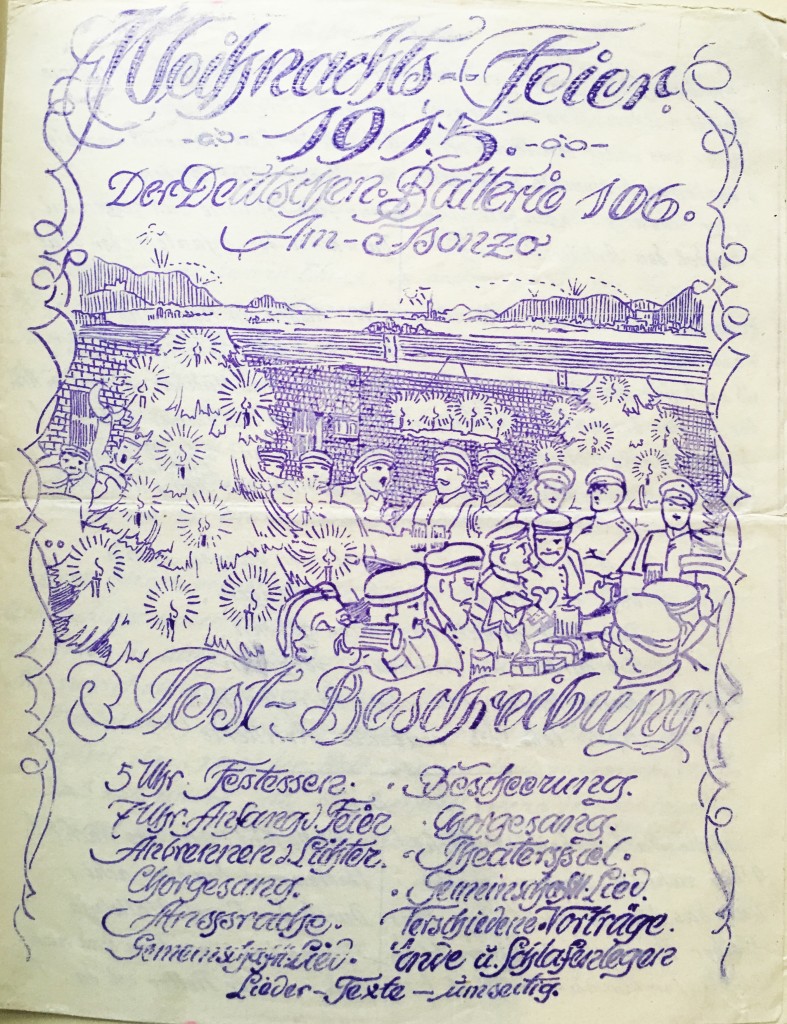 Weihnachts-Feier.
1915.
Der Deutschen Batterie 106.
Am-Isonzo.
Fest-Beschreibung.
5 Uhr Festessen.
7 Uhr Anfang d Feier
Anbrennen d Lichter.
Chorgesang.
Ansprache.
Gemeinschaftl. Lied.
Bescheerung.
Chorgesang.
Theaterspiel.
Gemeinschaftl. Lied.
Verschiedene Vorträge.
Ende u. Schlafenlegen
Lieder-Texte-umseitig.